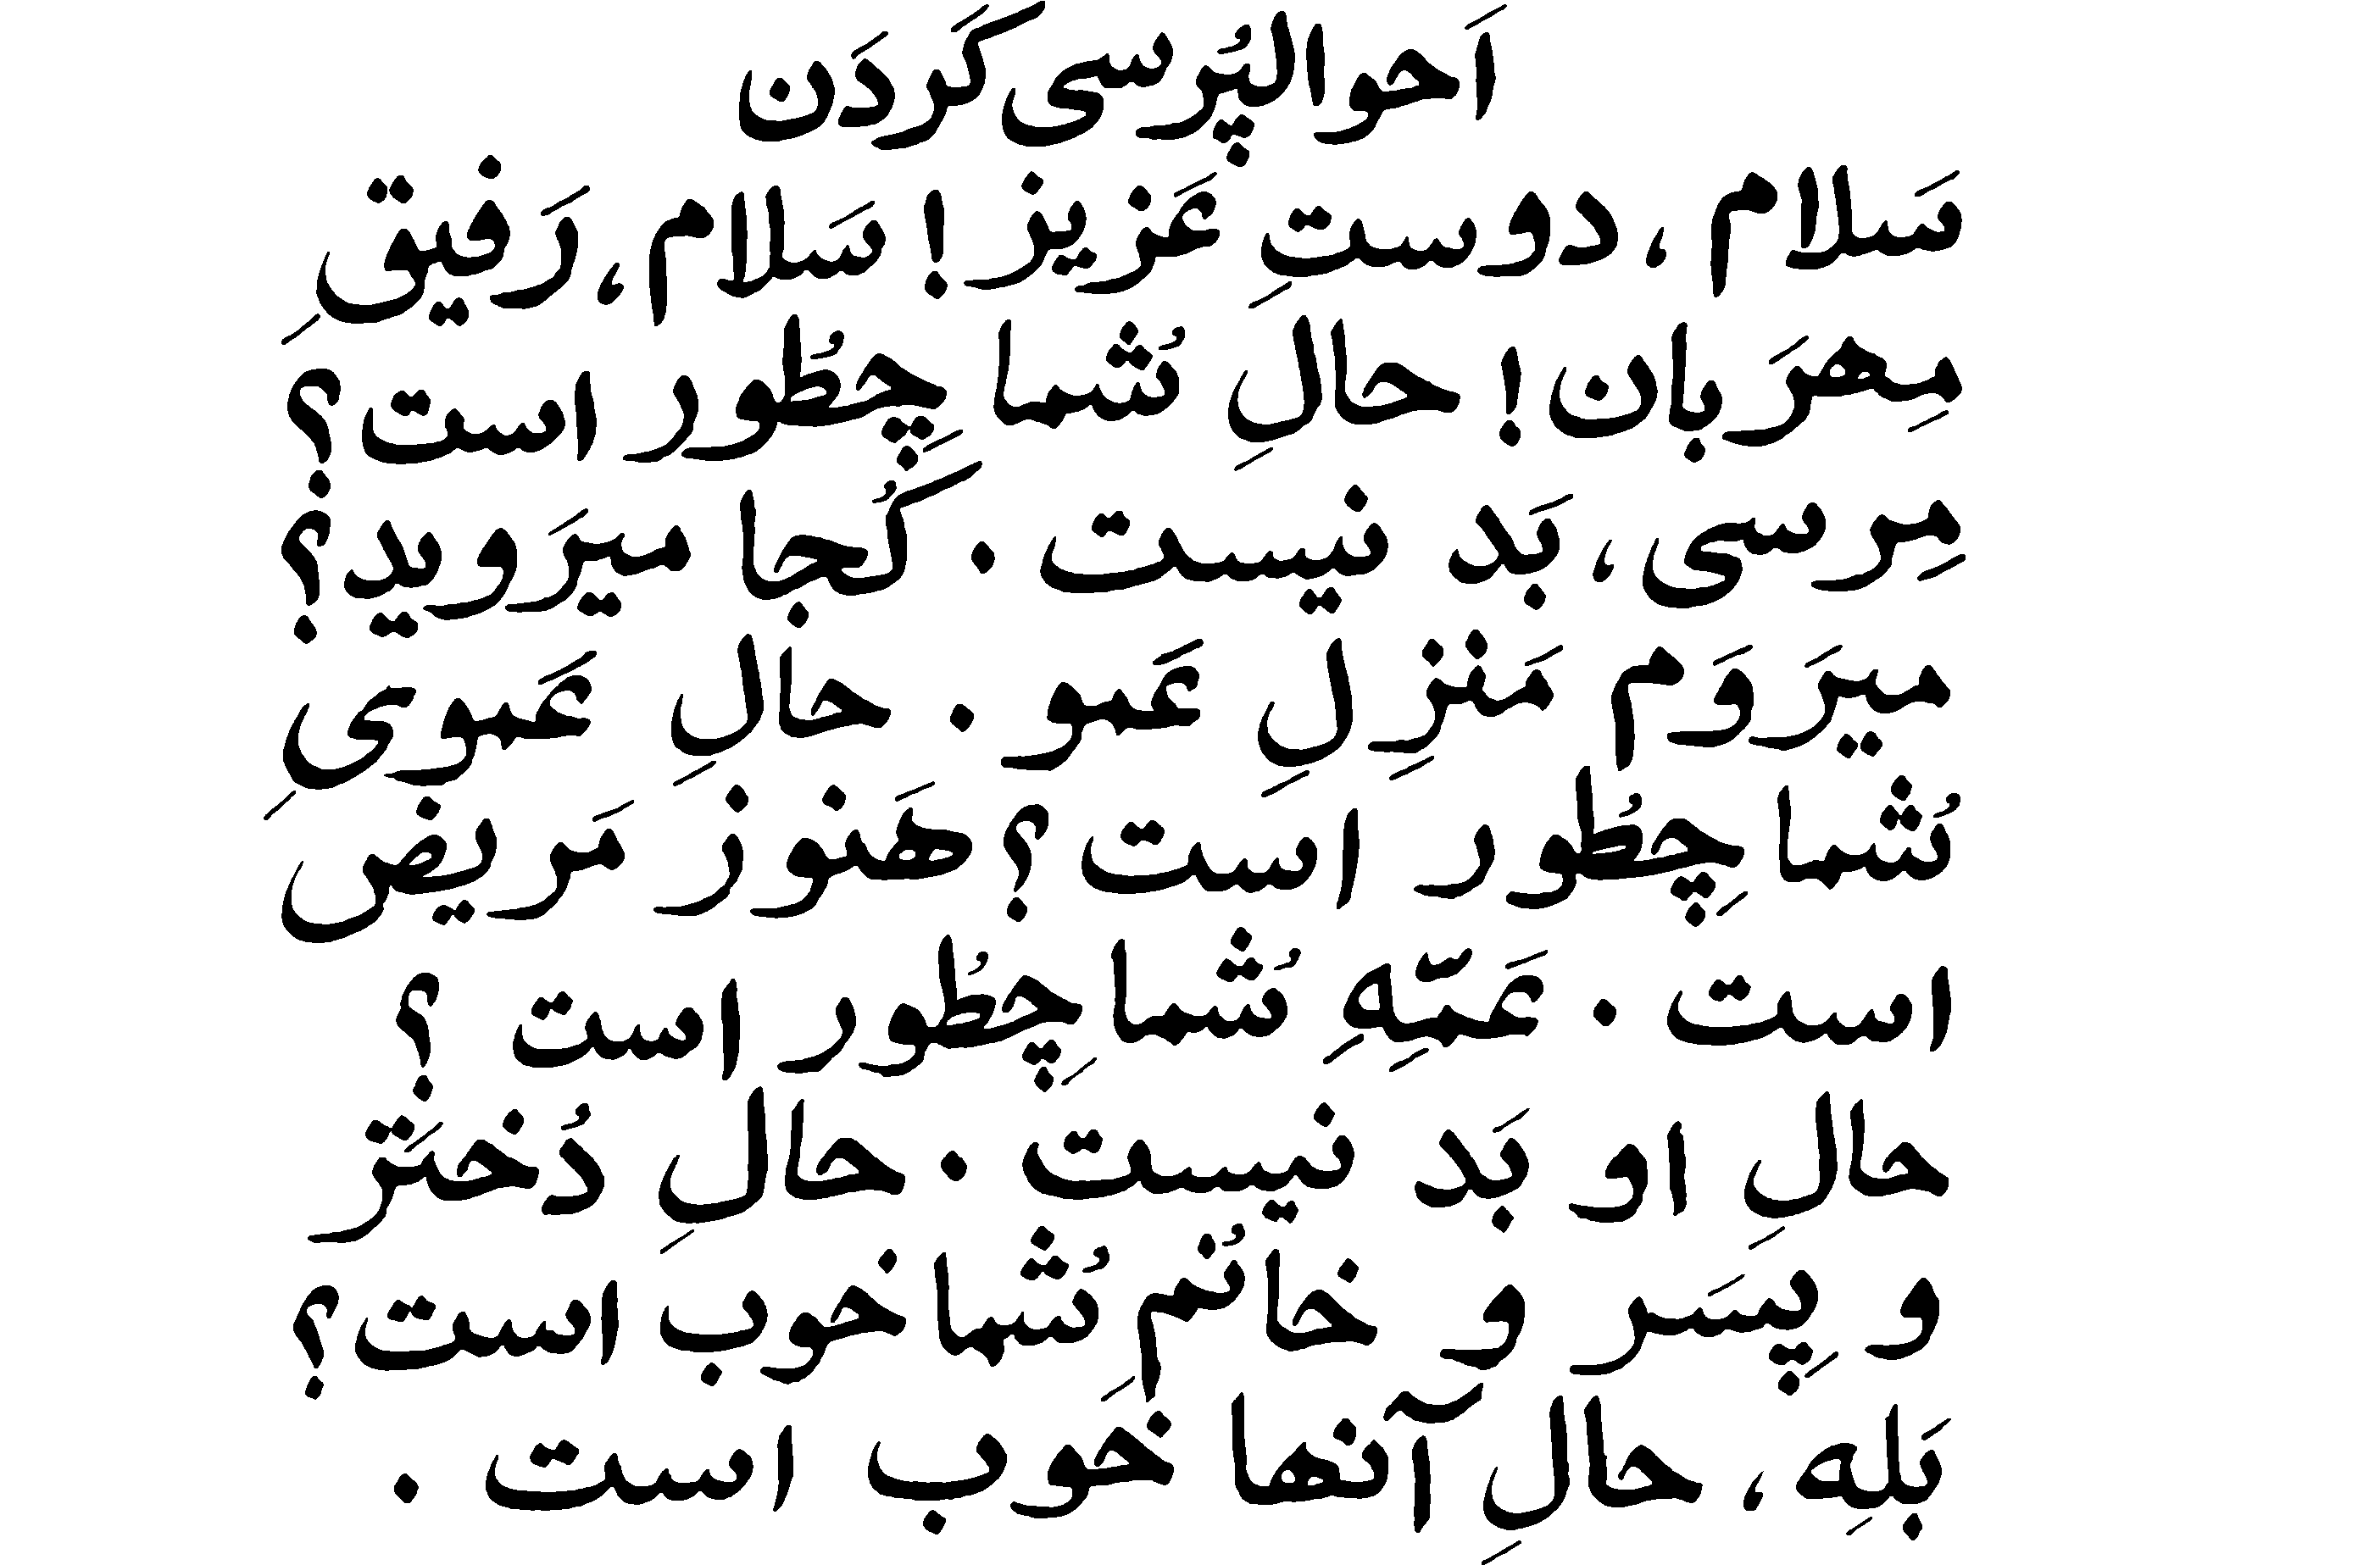 اَحوالپُرسی کَردَن
سَلام ، دوستِ عَزیز ! سَلام ، رَفیقِ
مِهرَبان ! حالِ شُما چِطُور است ؟
مِرسی ، بَد نیست . کُجا میرَوید ؟
میرَوَم مَنزِلِ عَمو . حالِ عَمویِ
شُما چِطُور است ؟ هَنوز مَریض
است . عَمّهِٔ شُما چِطُور است ؟
حالِ او بَد نیست . حالِ دُختَر
و پِسَر و خانُمِ شُما خوب است ؟
بَلِه ، حالِ آنها خَوب است .